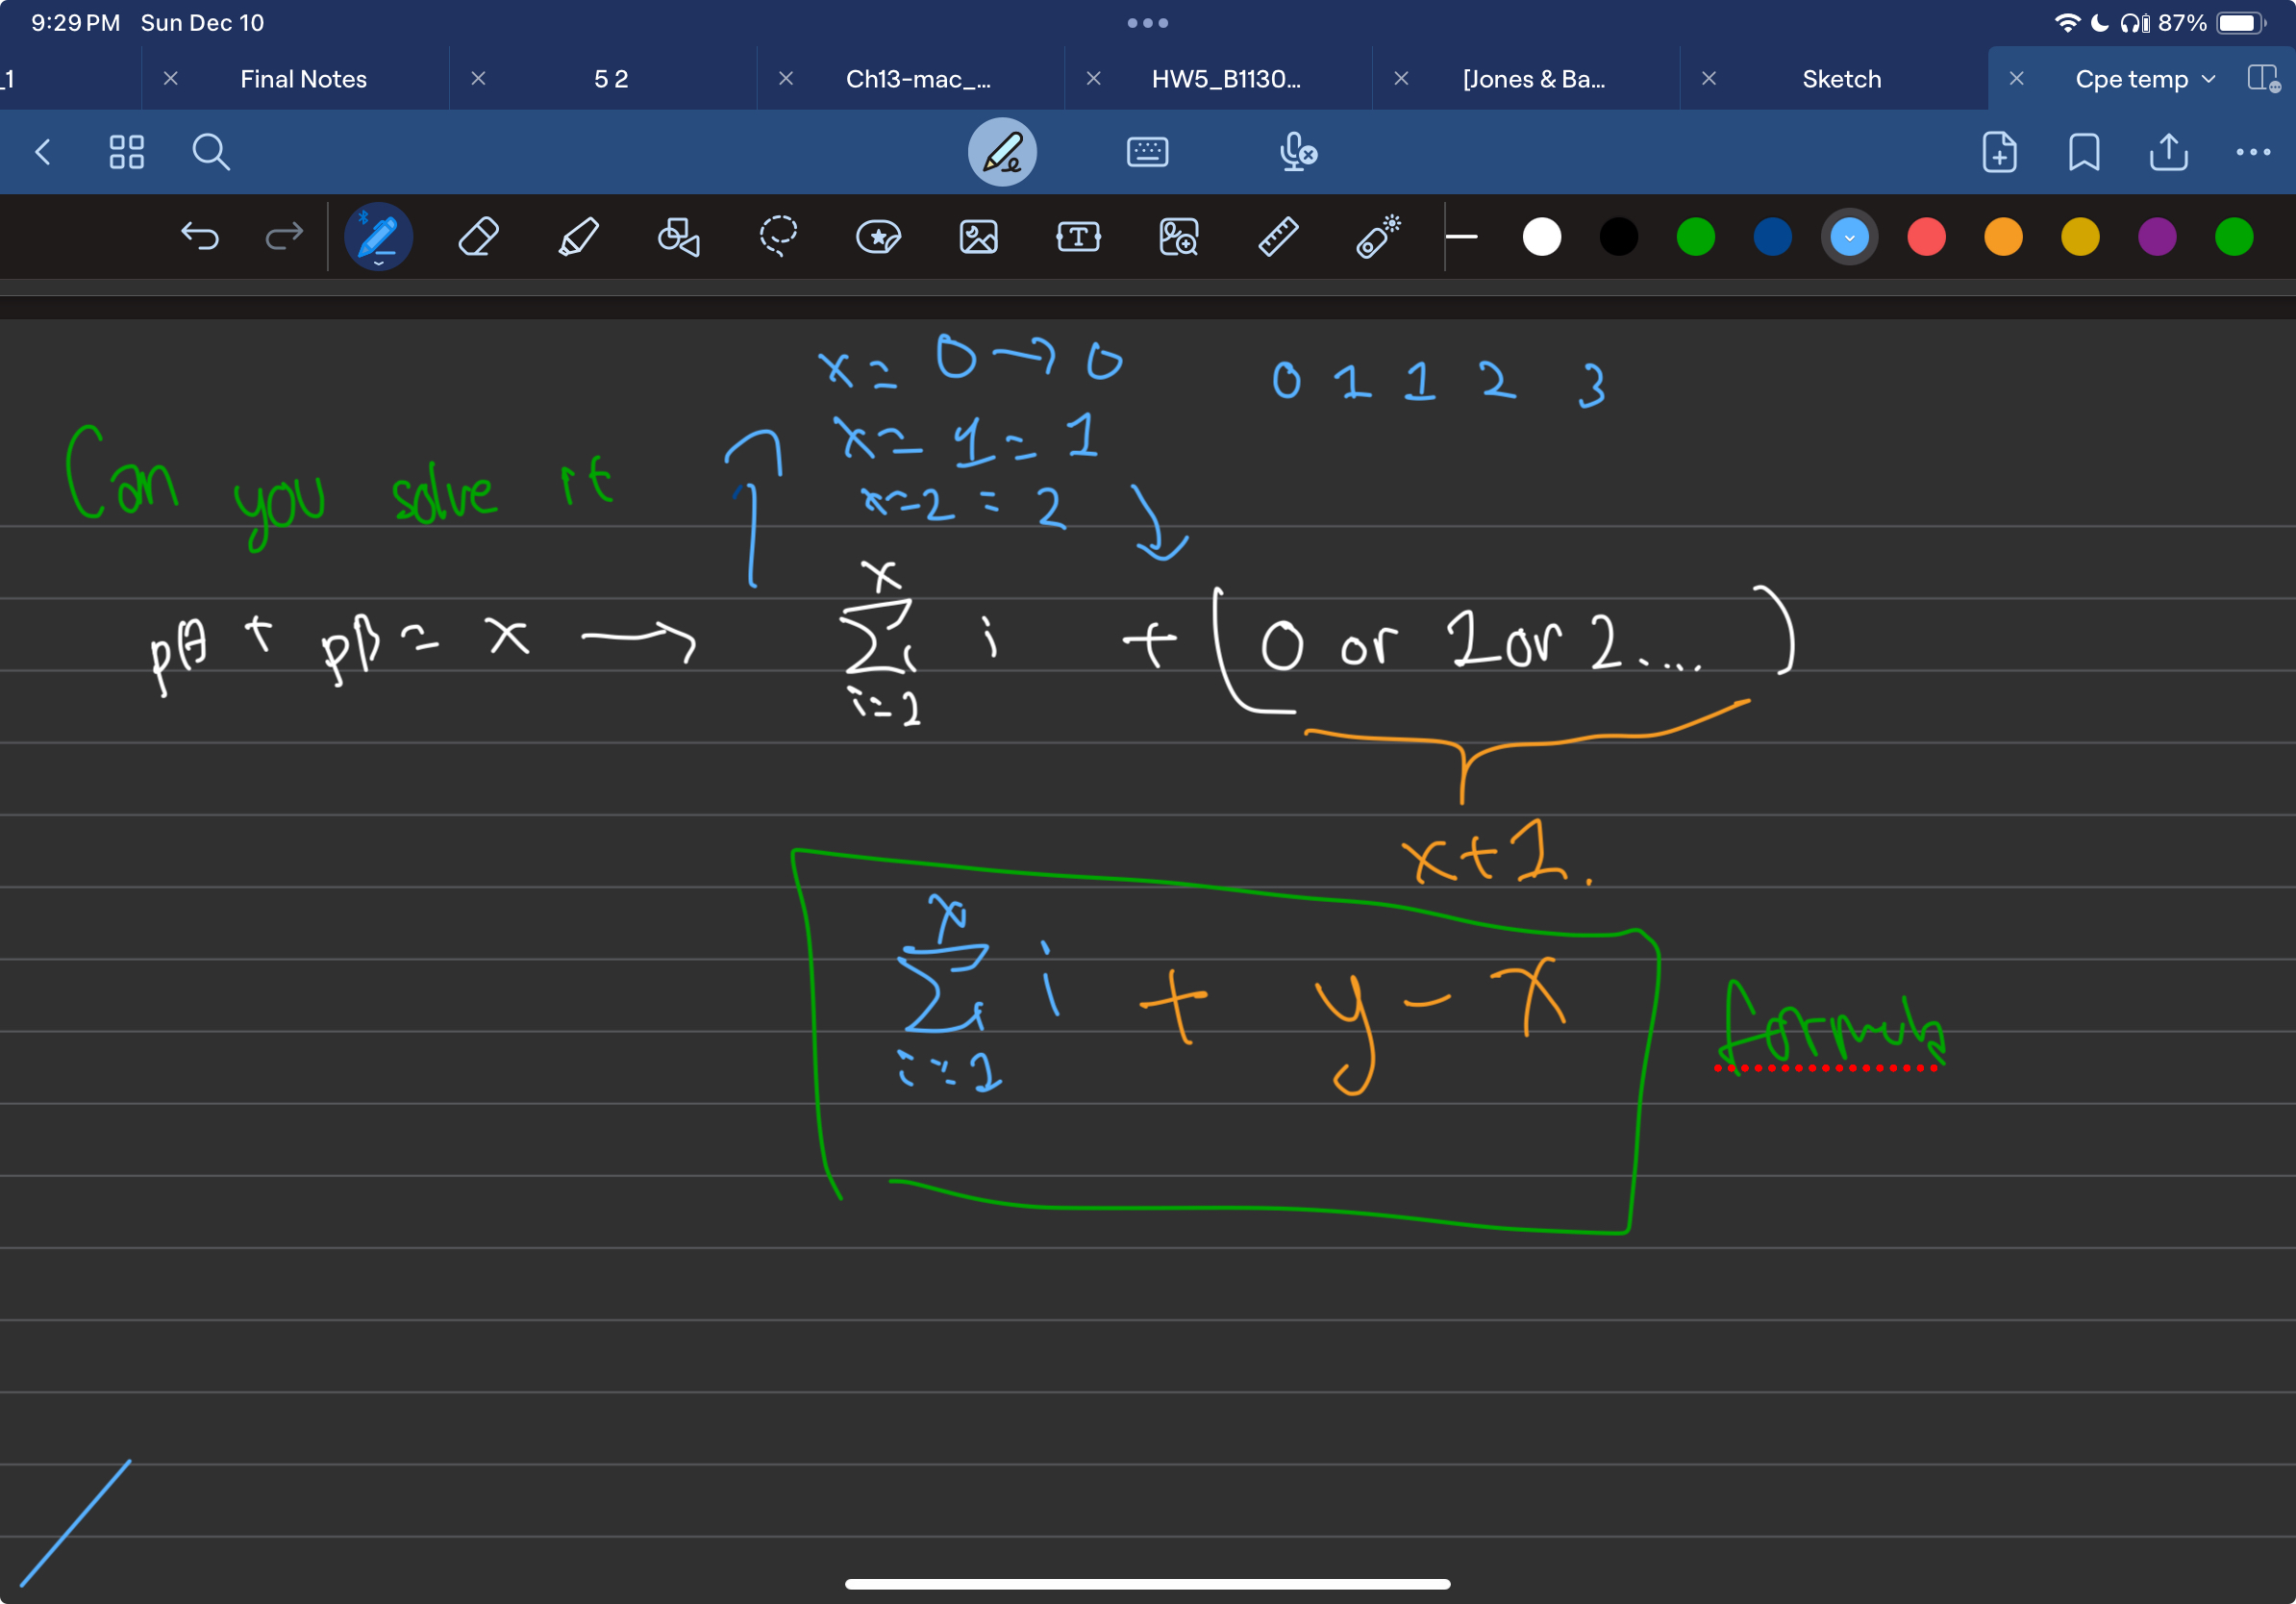 9:29 PM Sun Dec 10 87%
_1 Final Notes 5 2 Ch13-mac_... HW5_B1130... [Jones & Ba... Sketch Cpe temp
x = 0 → 0 0 1 1 2 3
x = 1 = 1
Can you solve it
x = 2 = 2
x
pA + pB = x → ∑ i + (0 or 1 or 2 .... )
i = 2
x + 1.
x
∑ i + y - x formula
i = 2